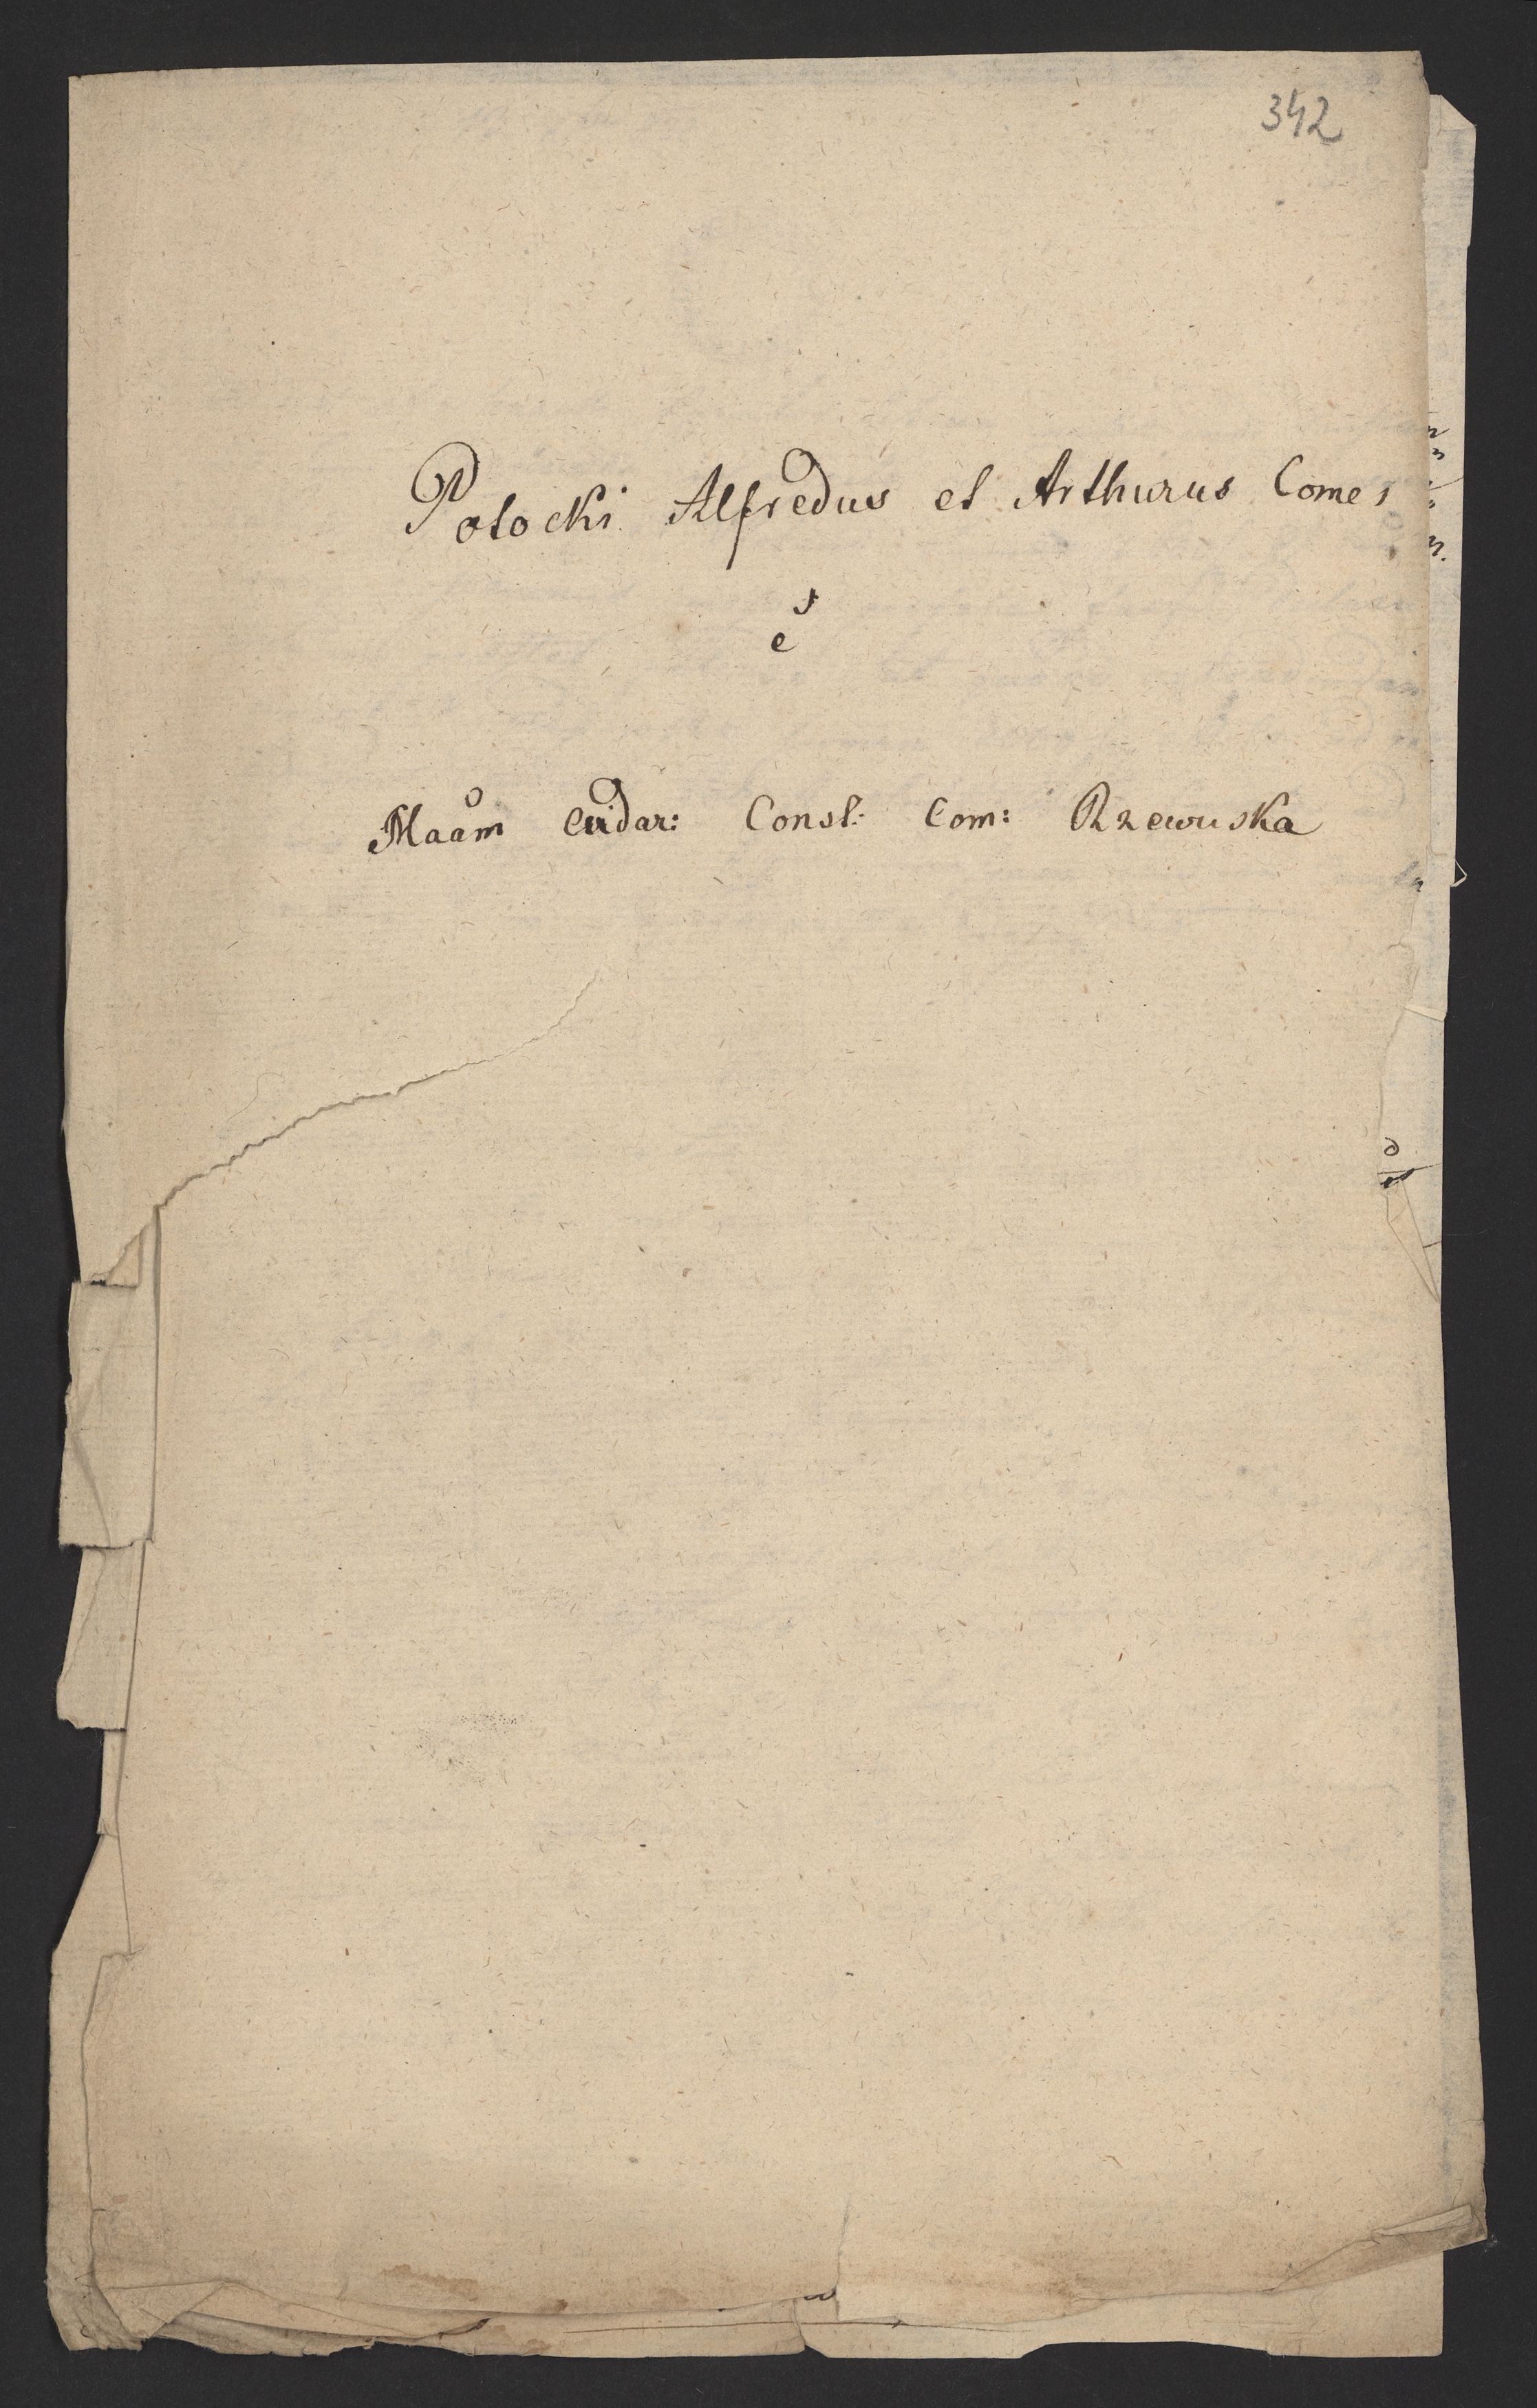 342
Potocki Alfredus et Arthurus Comes
c
Maam Com: Const: Rzewuska